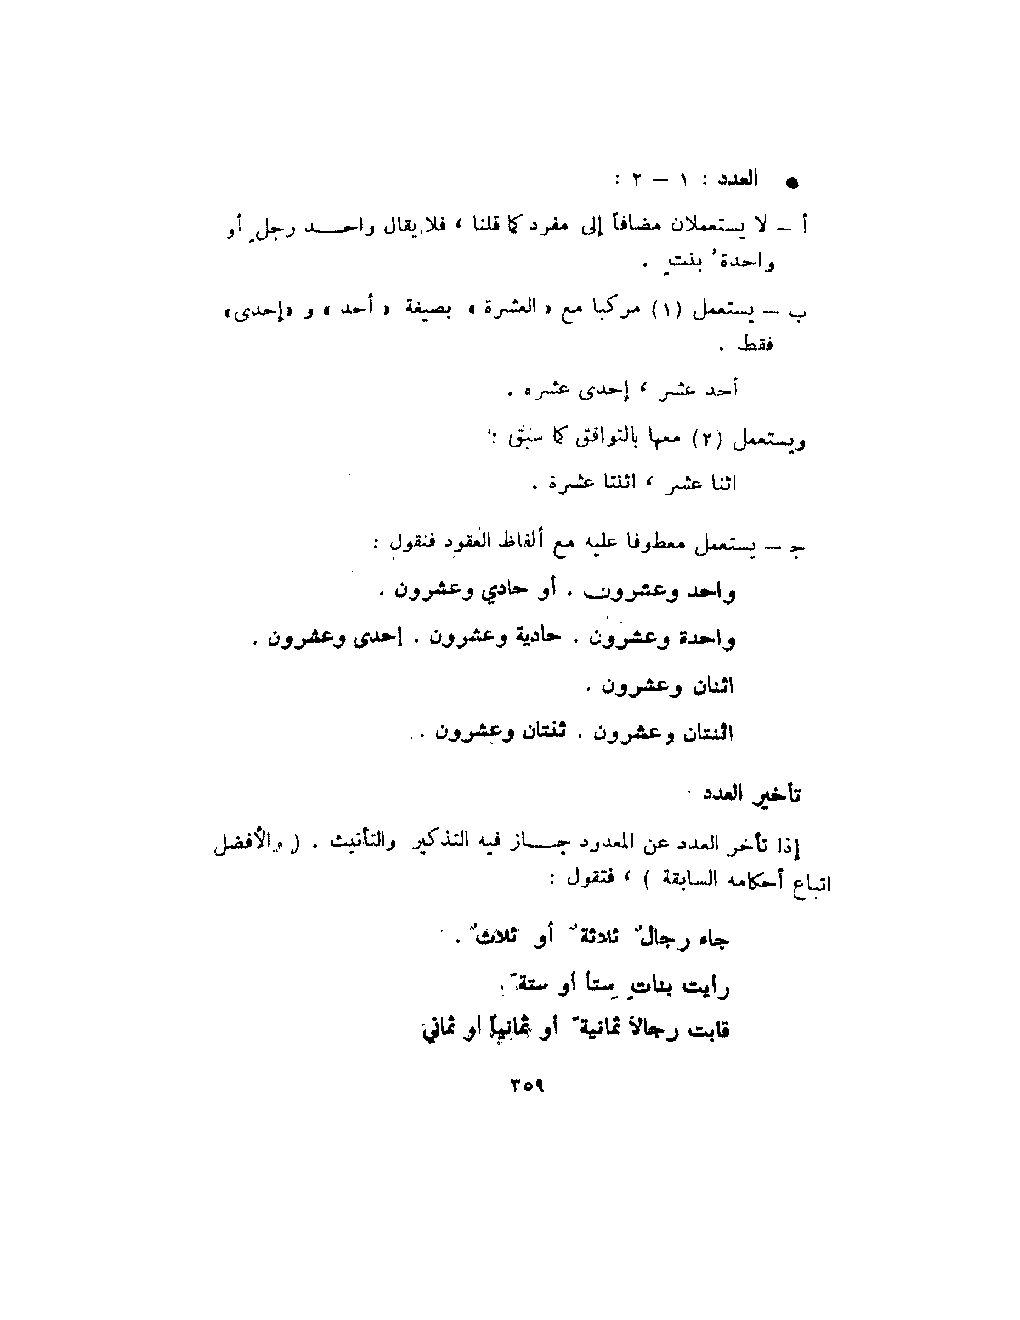 ● العدد : ١ – ٢ :
أ – لا يستعملان مضافاً إلى مفرد كما قلنا ، فلا يقال واحد رجلٍ أو
واحدةُ بنتٍ .
ب – يستعمل (١) مركبا مع « العشرة » بصيغة « أحد » و «إحدى»
فقط .
أحد عشر ، إحدى عشره .
ويستعمل (٢) معها بالتوافق كما سبق :
اثنا عشر ، اثنتا عشرة .
جـ – يستعمل معطوفا عليه مع ألفاظ العقود فنقول :
واحد وعشرون . أو حادي وعشرون .
واحدة وعشرون . حادية وعشرون . إحدى وعشرون .
اثنان وعشرون .
اثنتان وعشرون . ثنتان وعشرون .
تأخير العدد
إذا تأخر العدد عن المعدود جاز فيه التذكير والتأنيث . ( والأفضل
اتباع أحكامه السابقة ) ، فتقول :
جاء رجالٌ ثلاثةٌ أو ثلاثٌ .
رأيت بناتٍ ستاً أو ستةً .
قابت رجالاً ثمانيةً أو ثمانياً او ثماني
٣٥٩